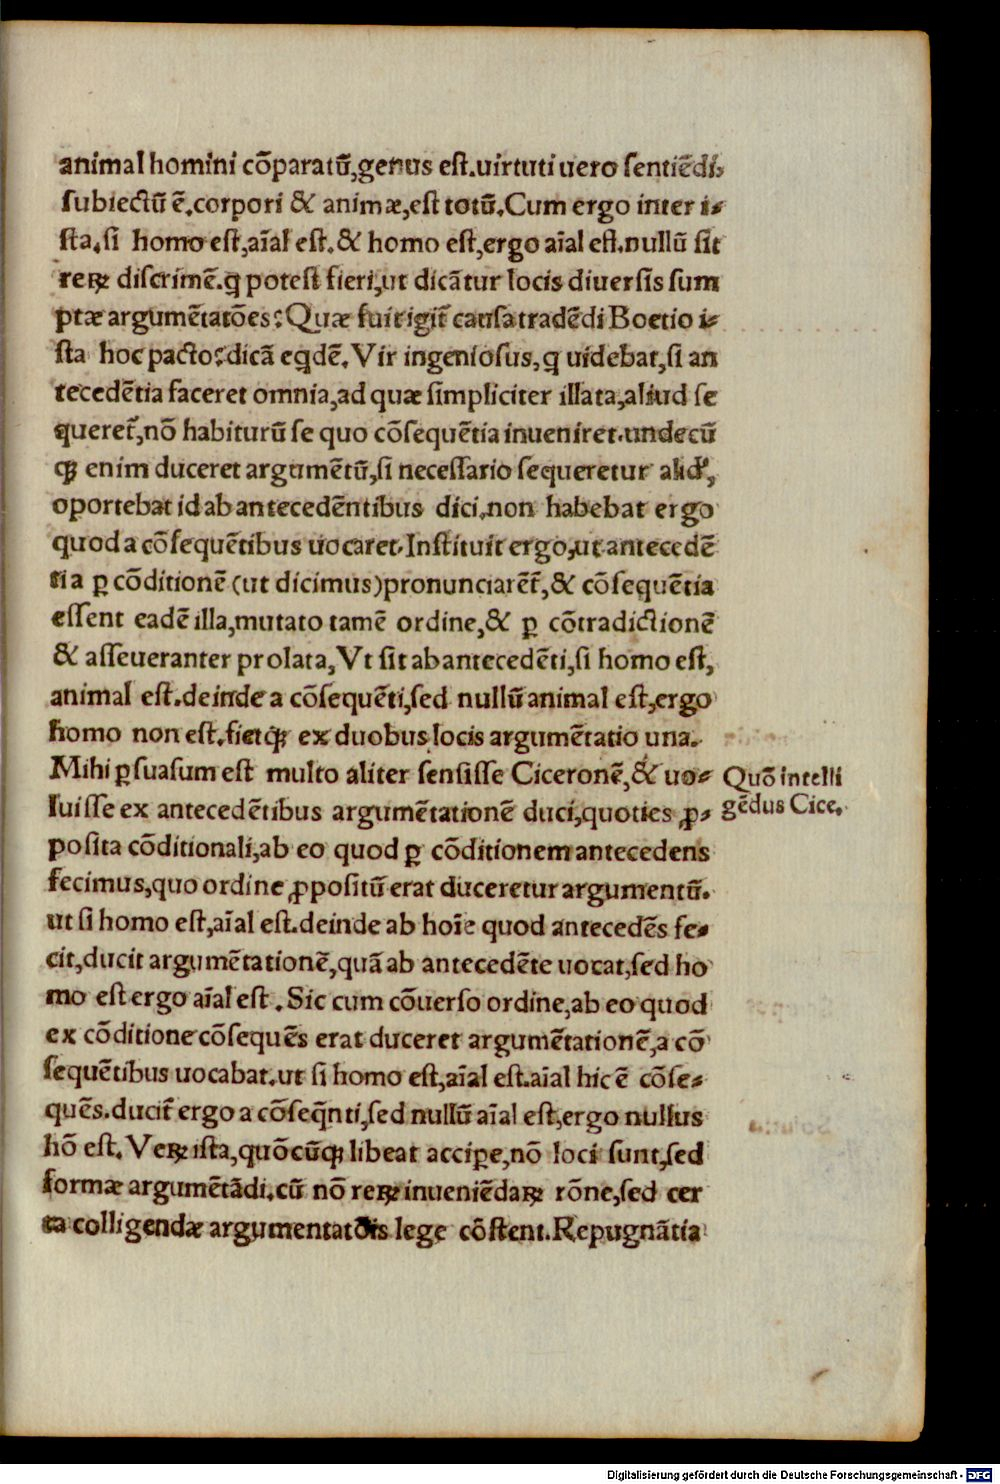 animal homini cōparatū,genus est.uirtuti uero sentiēdi,
subiectū ē.corpori & animæ,est totū.Cum ergo inter i-
sta,si homo est,aīal est.& homo est,ergo aīal est.nullū sit
reꝝ discrimē.q potest fieri,ut dicātur locis diuersis sum
ptæ argumētatōes?Quæ fuit igit̃ causa tradēdi Boetio i-
sta hoc pacto?dicā eqdē.Vir ingeniosus,q uidebat,si an
tecedētia faceret omnia,ad quæ simpliciter illata,aliud se
queret̃,nō habiturū se quo cōsequētia inueniret.undecū
qꝫ enim duceret argumētū,si necessario sequeretur alid',
oportebat id ab antecedētibus dici,non habebat ergo
quod a cōsequētibus uocaret.Instituit ergo,ut antecedē
tia ꝑ cōditionē (ut dicimus)pronunciarēt̃,& cōsequētia
essent eadē illa,mutato tamē ordine,& ꝑ cōtradictionē
& asseueranter prolata,Vt sit ab antecedēti,si homo est,
animal est.deinde a cōsequēti,sed nullū animal est,ergo
homo non est.fietqꝫ ex duobus locis argumētatio una.
Mihi ꝑsuasum est multo aliter sensisse Ciceronē,& uo-
luisse ex antecedētibus argumētationē duci,quoties ꝓ-
posita cōditionali,ab eo quod ꝑ cōditionem antecedens
fecimus,quo ordine ꝓpositū erat duceretur argumentū.
ut si homo est,aīal est.deinde ab hoīe quod antecedēs fe-
cit,ducit argumētationē,quā ab antecedēte uocat,sed ho
mo est ergo aīal est.Sic cum cōuerso ordine,ab eo quod
ex cōditione cōsequēs erat duceret argumētationē,a cō
sequētibus uocabat.ut si homo est,aīal est.aīal hic ē cōse-
quēs.ducit̃ ergo a cōseq̄nti,sed nullū aīal est,ergo nullus
hō est.Veꝝ ista,quōcūqꝫ libeat acciꝑe,nō loci sunt,sed
formæ argumētādi.cū nō reꝝ inueniēdaꝝ rōne,sed cer
ta colligendæ argumentatōis lege cōstent.Repugnātia
Quō intelli
gēdus Cice.
Digitalisierung gefördert durch die Deutsche Forschungsgemeinschaft - DFG